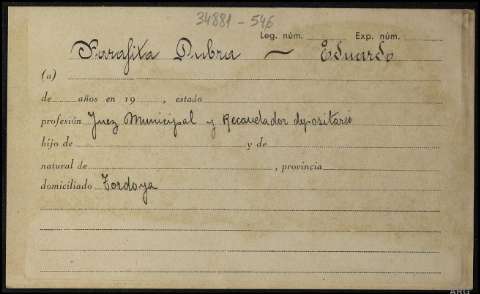 34881-546
Leg. núm. Exp. núm.
Parafita Dubra — Eduardo
(a)
de años en 19 , estado
profesión Juez Municipal y Recaudador depositario
hijo de y de
natural de , provincia
domiciliado Tordoya
ARG